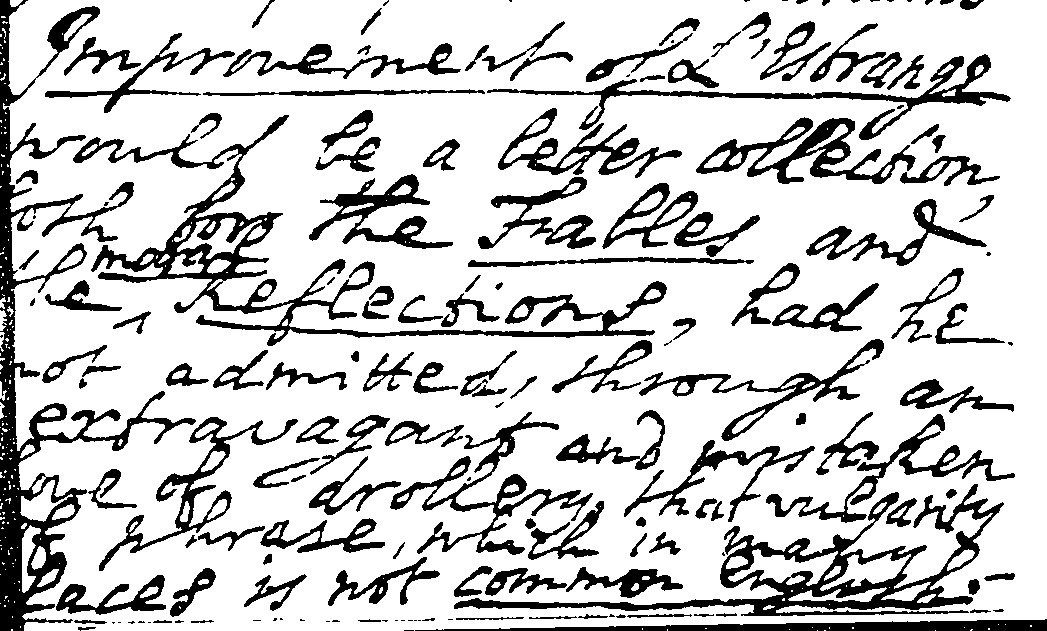 Improvement of L'Estrange
would be a better collection,
both for the Fables and
moral
the Reflections, had he
not admitted, through an
extravagant and mistaken
love of drollery, that vulgarity
of phrase, which in many
places is not common English.